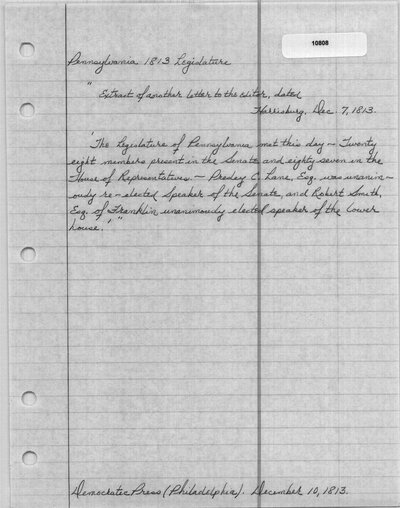 10808
Pennsylvania 1813 Legislature
"
Extract of another letter to the editor, dated
Harrisburg, Dec. 7, 1813.
'The Legislature of Pennsylvania met this day — Twenty
eight members present in the Senate and eighty seven in the
House of Representatives. — Presley C. Lane, Esq. was unanim-
ously re-elected Speaker of the Senate, and Robert Smith,
Esq. of Franklin unanimously elected speaker of the lower
house.'"
Democratic Press (Philadelphia). December 10, 1813.